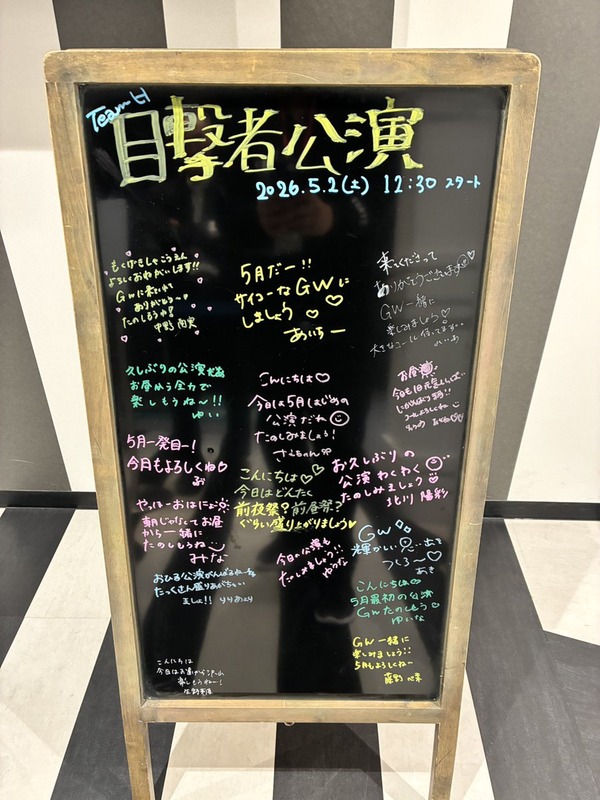 Team H
目撃者公演
2026.5.2(土) 12:30 スタート
もくげきしゃこうえん
よろしくおねがいします!!
GWに来てくれて
ありがとう〜
たのしもうね!
5月だー!!
サイコーなGWに
しましょう♡♡
あいちー
来てくださって
ありがとうございます
GW一緒に
楽しみましょう♡
久しぶりの公演
お昼から全力で
楽しもうね〜!!
ゆい
こんにちは♡
今日は5月はじめの
公演だね
たのしみましょう!
お昼
5月一発目ー!
今月もよろしくね♡
お久しぶりの
公演わくわく
たのしみましょう♡
北川 陽彩
こんにちは♡♡
今日はどんたく
前夜祭?前昼祭?
ぐらい盛り上がりましょう♥
やっほーおはにょ
朝じゃなくてお昼
から一緒に
たのしもうね
みな
今日の公演も
たのしみましょう!!
ゆうな
GW
輝かしい思い出を
つくろ〜♡
おひる公演がんばるぞー
たっくさん盛りあがちゃい
ましょ!!
こんにちは
5月最初の公演
GWたのしもう
ゆいな
GW一緒に
楽しみましょう
5月もよろしくね〜
藤野 心菜
こんにちは
楽しもうねー!